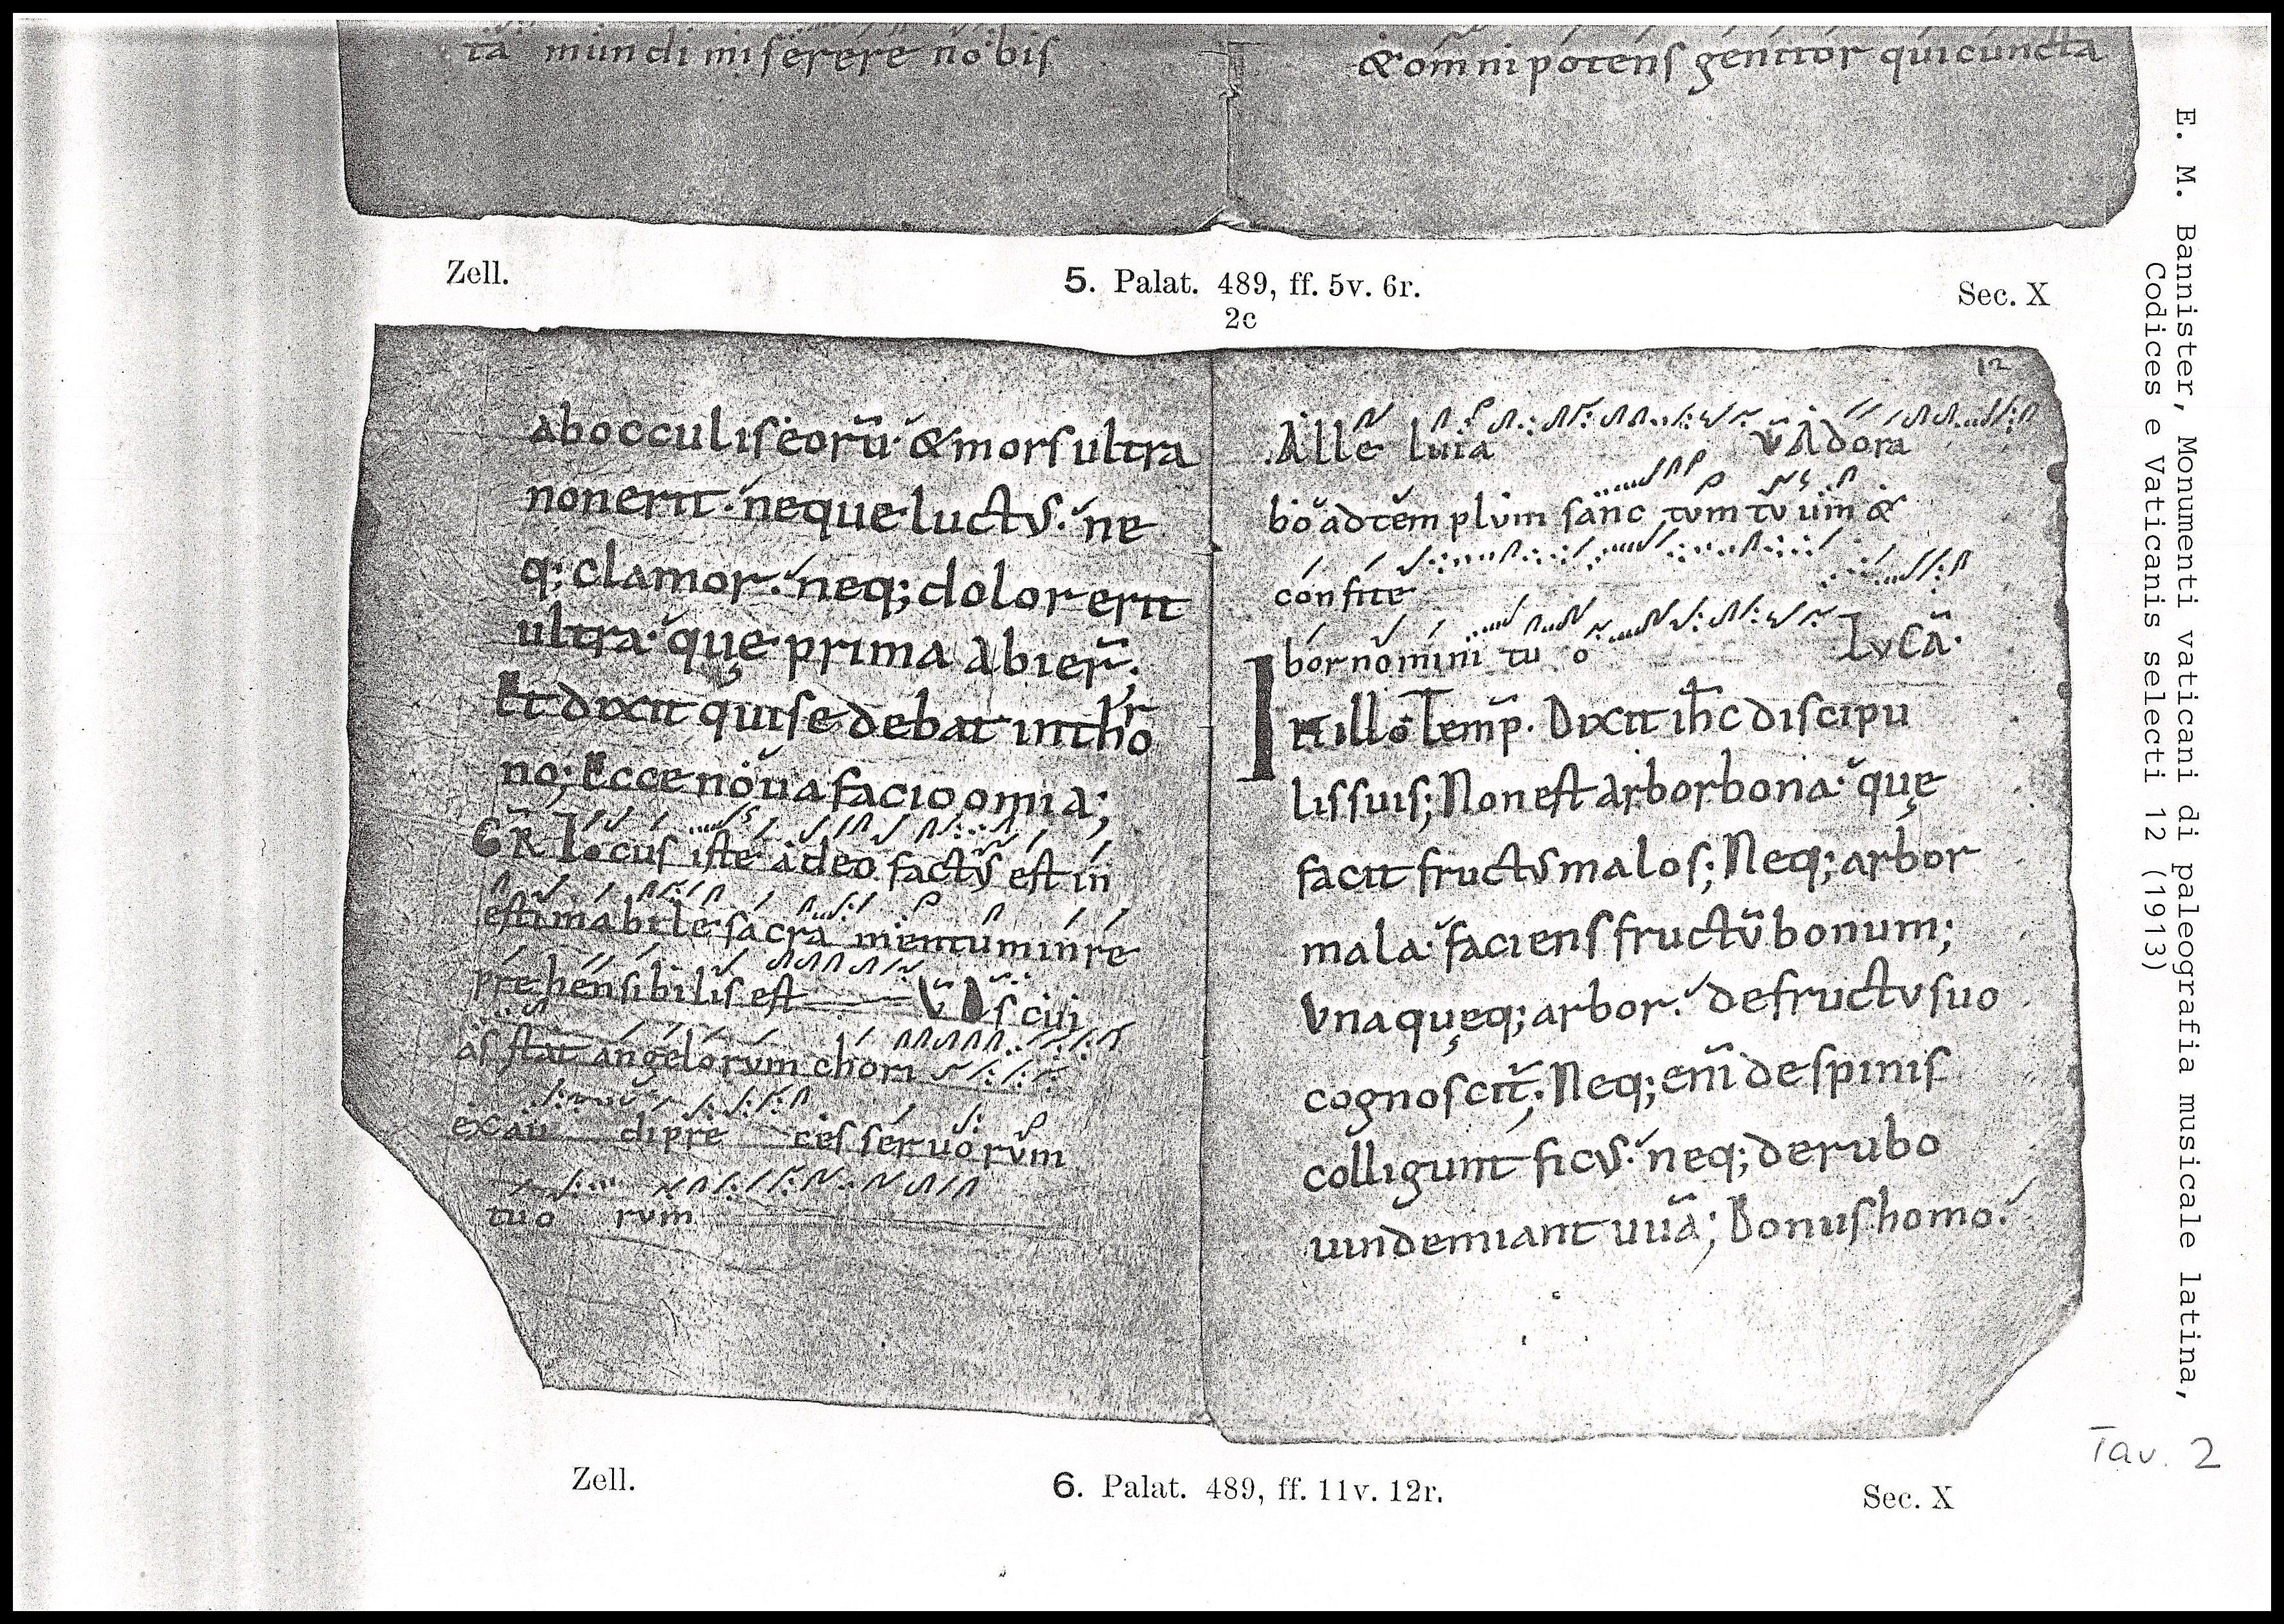 ta mundi miserere nobis
& omnipotens genitor qui cuncta
Zell.
5. Palat. 489, ff. 5v. 6r.
Sec. X
2c
ab occulis eorū· & mors ultra
non erit· neque luctus· ne
q; clamor· neq; dolor erit
ultra· quę prima abier̄;
Et dixit qui sedebat in thr̊o
no; Ecce noua facio om̄ia;
GR̄ Locus iste a deo factus est in
estimabile sacra mentum inre
prehensibilis est V̄ Ds cui
as stat angelorum chori
exau di pre ces seruorum
tuo rum
12
Alle luia V̄ Adora
bo ad templum sanc tum tuum &
confite
bor nomini tu o LUCĀ·
IN illo Temp̄· Dixit ih̄c discipu
lis suis; Non est arbor bona· quę
facit fructus malos; Neq; arbor
mala· faciens fructū bonum;
Vna quęq; arbor· de fructu suo
cognoscit̄; Neq; enī de spinis
colligunt ficus· neq; de rubo
uindemiant uuā; Bonus homo·
Zell.
6. Palat. 489, ff. 11v. 12r.
Sec. X
E. M. Bannister, Monumenti vaticani di paleografia musicale latina,
Codices e Vaticanis selecti 12 (1913)
Tav. 2